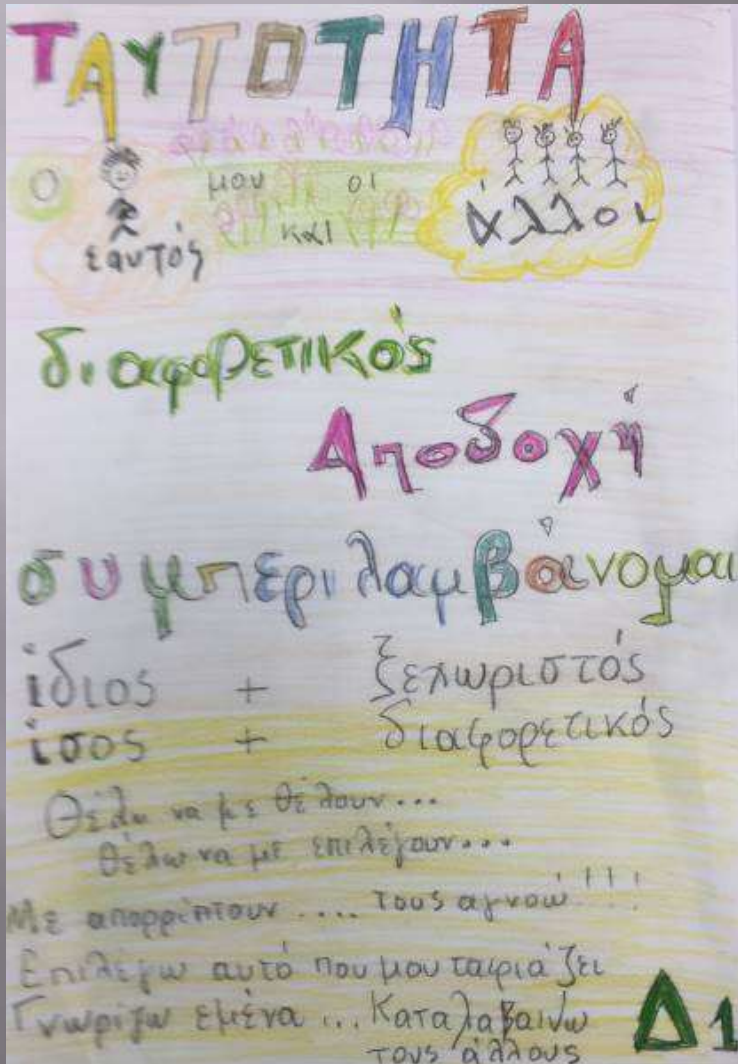 ΤΑΥΤΟΤΗΤΑ
Ο εαυτός μου και οι άλλοι
διαφορετικός
Αποδοχή
συμπεριλαμβάνομαι
ίδιος + ξεχωριστός
ίσος + διαφορετικός
Θέλω να με θέλουν...
θέλω να με επιλέγουν...
Με απορρίπτουν .... τους αγνοώ!!!
Επιλέγω αυτό που μου ταιριάζει
Γνωρίζω εμένα ... Καταλαβαίνω
τους άλλους
Δ1